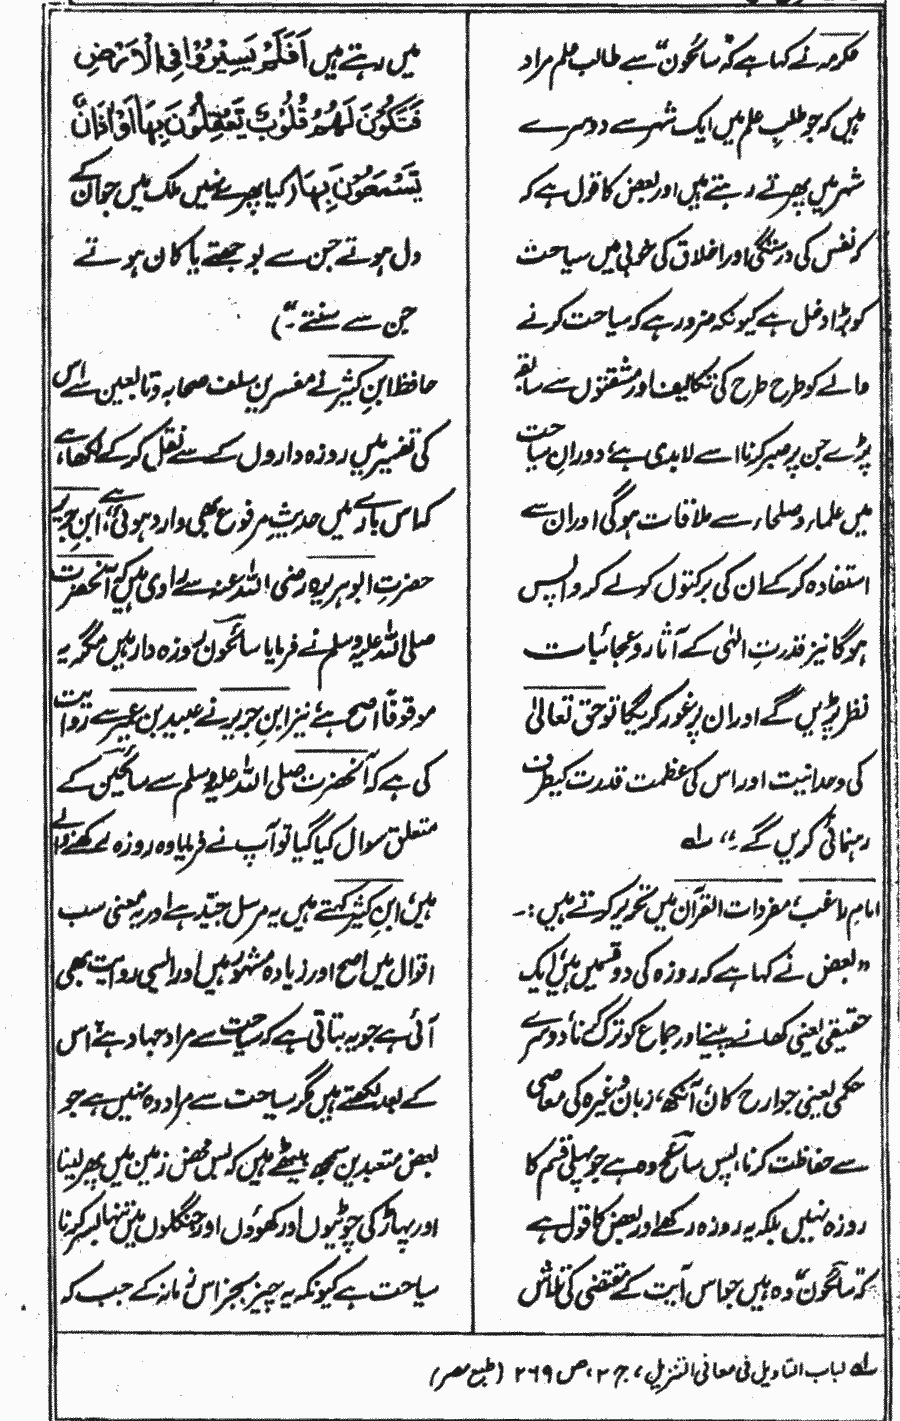 عکرمہ نے کہا ہے کہ "سائحون" سے طالب علم مراد
ہیں کہ جو طلبِ علم میں ایک شہر سے دوسرے
شہر میں پھرتے رہتے ہیں اور بعض کا قول ہے کہ
کو نفس کی درستگی اور اخلاق کی خوبی میں سیاحت
کو بڑا دخل ہے کیونکہ ضرور ہے کہ سیاحت کرنے
والے کو طرح طرح کی تکالیف اور مشقتوں سے سابقہ
پڑے جن پر صبر کرنا اسے لابدی ہے، دورانِ سیاحت
میں علماء وصلحاء سے ملاقات ہوگی اور ان سے
استفادہ کرکے ان کی برکتوں کو لے کر واپس
ہوگا نیز قدرتِ الٰہی کے آثار و عجائبات
نظر پڑیں گے اور ان پر غور کریگا تو حق تعالیٰ
کی وحدانیت اور اس کی عظمت قدرت کیطرف
رہنمائی کریں گے۔" لہ
امام راغب، مفردات القرآن میں تحریر کرتے ہیں :۔
"بعض نے کہا ہے کہ روزہ کی دو قسمیں ہیں، ایک
حقیقی یعنی کھانے پینے اور جماع کو ترک کرنا، دوسرے
حکمی یعنی جوارح کان، آنکھ، زبان وغیرہ کی معاصی
سے حفاظت کرنا، پس سائح وہ ہے جو پہلی قسم کا
روزہ نہیں بلکہ یہ روزہ رکھے اور بعض کا قول ہے
کہ "سائحون" وہ ہیں جو اس آیت کے مقتضی کی تلاش
میں رہتے ہیں اَفَلَمْ يَسِيْرُوْا فِي الْاَرْضِ
فَتَكُوْنَ لَهُمْ قُلُوْبٌ يَعْقِلُوْنَ بِهَا اَوْ اٰذَانٌ
يَسْمَعُوْنَ بِهَا (کیا پھرے نہیں ملک میں جو ان کے
دل ہوتے جن سے بوجھتے یا کان ہوتے
جن سے سنتے۔")
حافظ ابن کثیر نے مفسرین سلف صحابہ و تابعین سے اس
کی تفسیر میں روزہ داروں کے سے نقل کر کے لکھا ہے،
کہ اس بارے میں حدیثِ مرفوع بھی وارد ہوئی ہے، ابن جریر
حضرت ابوہریرہ رضی اللہ عنہ سے راوی ہیں کہ آنحضرت
صلی اللہ علیہ وسلم نے فرمایا سائحون روزہ دار ہیں مگر یہ
موقوفاً اصح ہے، نیز ابن جریر نے عبید بن عمیر سے روایت
کی ہے کہ آنحضرت صلی اللہ علیہ وسلم سے سائحین کے
متعلق سوال کیا گیا تو آپ نے فرمایا وہ روزہ رکھنے والے
ہیں، ابن کثیر کہتے ہیں یہ مرسل جید ہے اور یہ معنی سب
اقوال میں اصح اور زیادہ مشہور ہیں اور ایسی روایت بھی
آئی ہے جو یہ بتاتی ہے کہ سیاحت سے مراد جہاد ہے، اس
کے بعد لکھتے ہیں مگر سیاحت سے مراد وہ نہیں ہے جو
بعض متعبدین سمجھ بیٹھے ہیں کہ بس محض زمین میں پھر لینا
اور پہاڑ کی چوٹیوں اور کھوؤں اور جنگلوں میں تنہا بسر کرنا
سیاحت ہے کیونکہ یہ چیز بجز اس زمانہ کے جب کہ
لہ لباب التاویل فی معانی التنزیل، ج ۲، ص ۲۶۹ (طبع مصر)